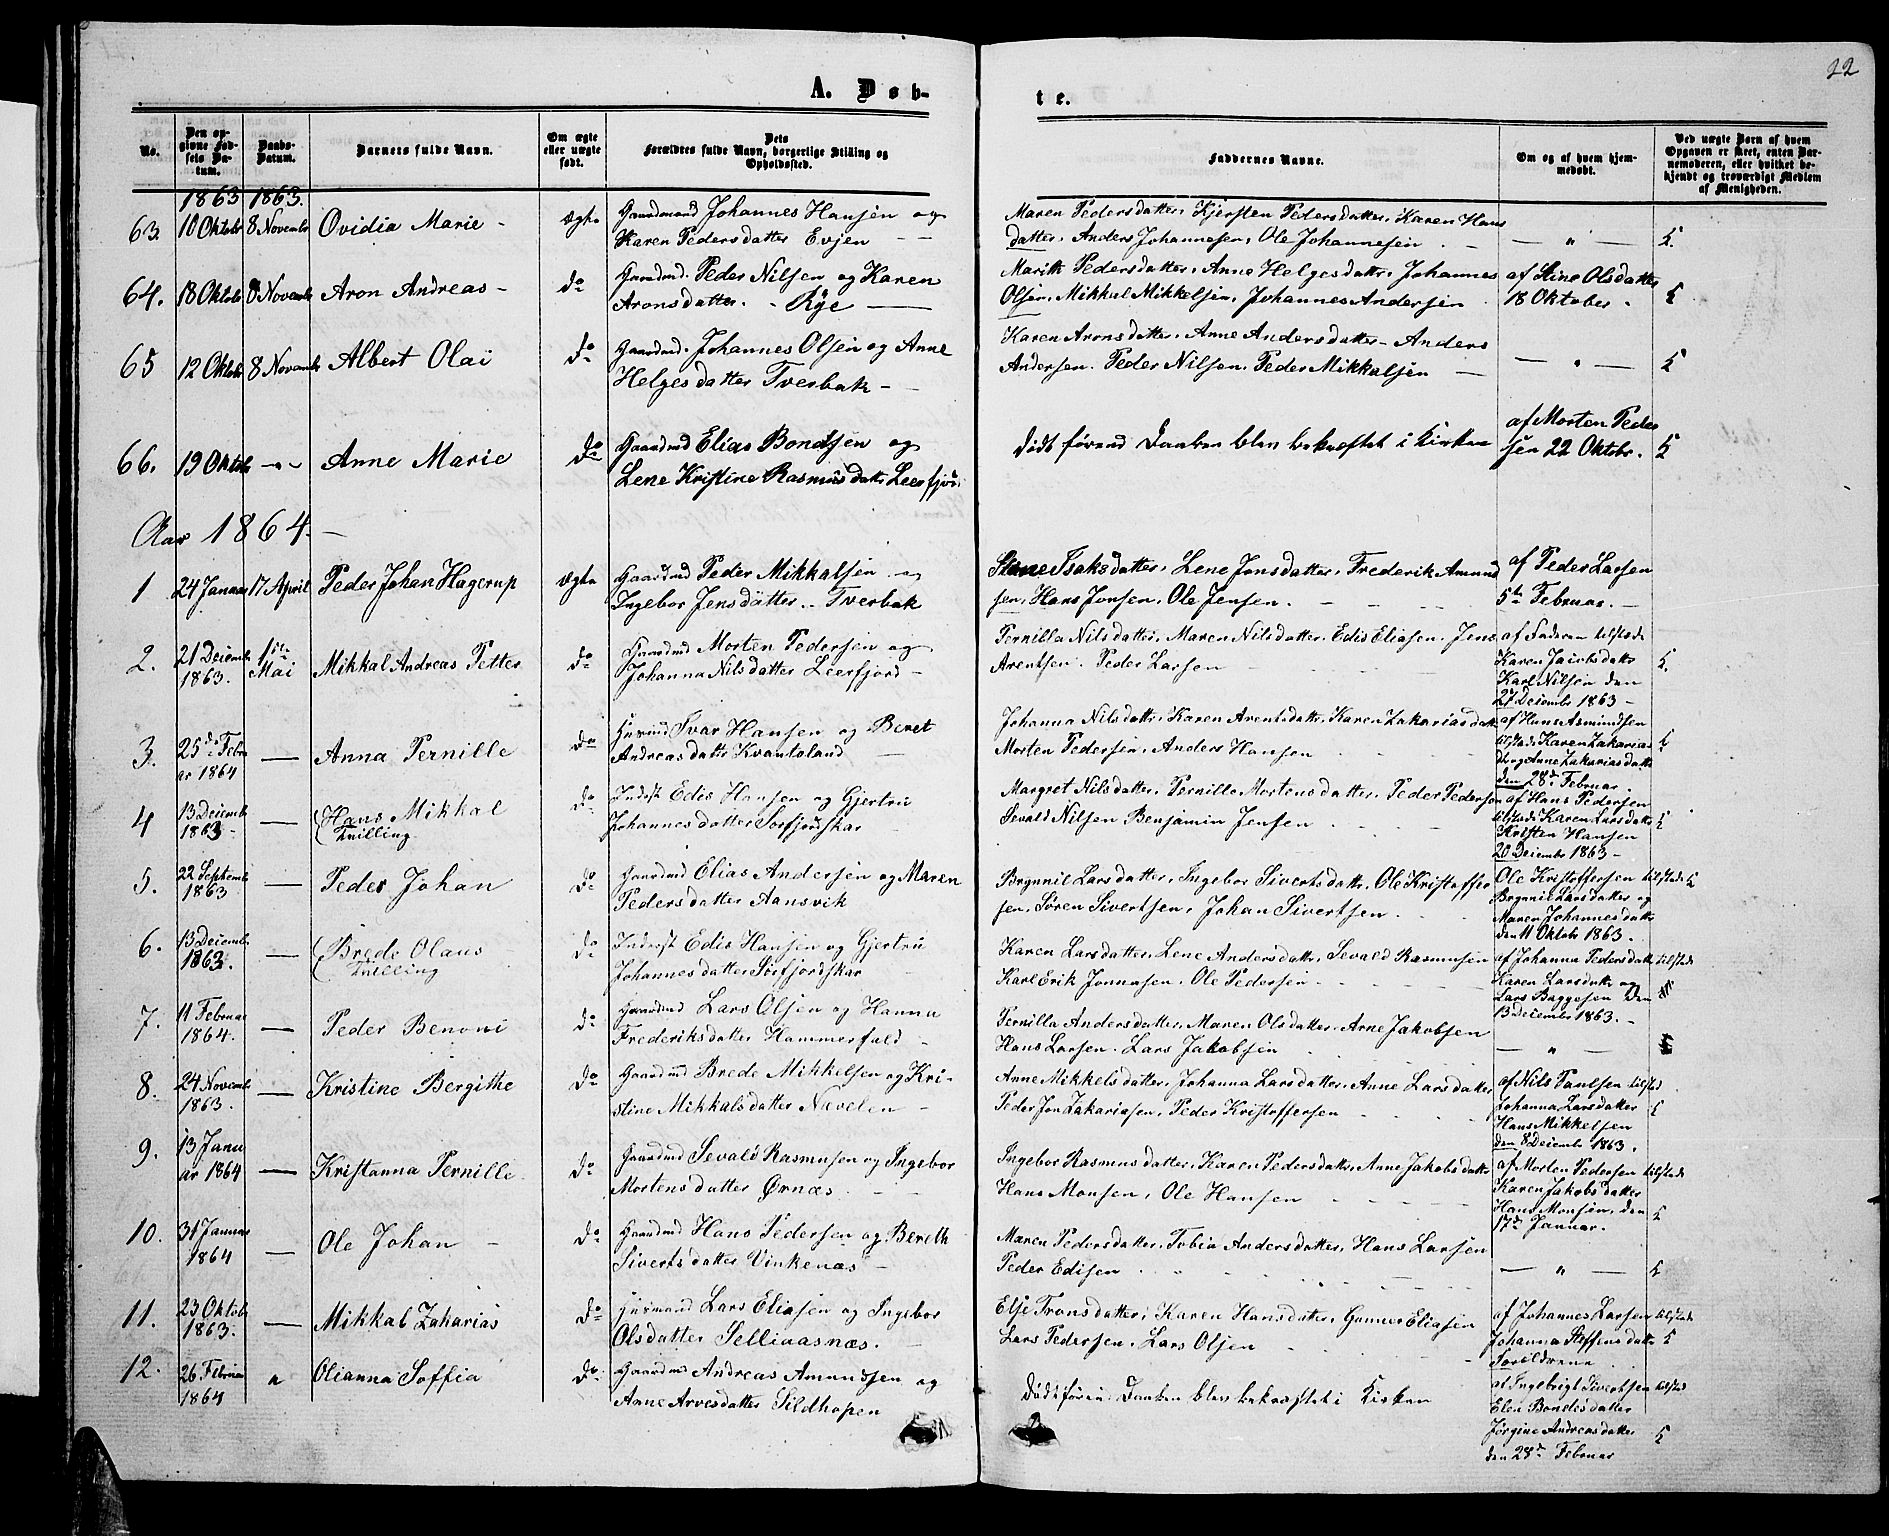 22
A. Døb-
te.
No.
Den opgivne Fødsels Datum.
Daabs-Datum.
Barnets fulde Navn.
Om ægte eller uægte født.
Dets Forældres fulde Navn, borgerlige Stilling og Opholdssted.
Faddernes Navne.
Om og af hvem hjemmedøbt.
Ved uægte Børn af hvem Opgaven er skeet, enten Barnemoderen, eller hvilket bekjendt og troværdigt Medlem af Menigheden.
1863 1863.
63. 10 Oktobr 8 Novembr Ovidia Marie - ægte Gaardmand Johannes Hansen og
Karen Pedersdatter Evjen
Maren Pedersdatter, Kjersten Pedersdatter, Karen Hans
datter, Anders Johannesen, Ole Johannesen - — " —
64. 18 Oktobr 8 Novembr Aron Andreas - do Gaardmd. Peder Nilsen og Karen
Aronsdatter. - Rye —
Marith Pedersdatter, Anne Helgesdattr, Johannes
Olsen, Mikkal Mikkelsen, Johannes Andersen
af Stine Olsdatter
18 Oktober.
65 12 Oktobr 8 Novembr Albert Olai do Gaardmd. Johannes Olsen og Anne
Helgesdatter Tverbak -
Karen Aronsdatter, Anne Andersdatter - Anders
Andersen. Peder Nilsen, Peder Mikkalsen — — " —
66. 19 Oktobr -"- Anne Marie do Gaardmd Elias Bondesen og
Lene Kristine Rasmusdattr Leerfjord
Dødt førend Daaben blev bekræftet i Kirken
af Morten Peder
sen 22 Oktobr.
Aar 1864. -
1 24 Januar 17 April Peder Johan Hagerup ægte Gaardmd Peder Mikkalsen og
Ingebor Jensdatter - Tverbak
Stine Isaksdatter, Lene Jonsdatter, Frederik Amund
sen, Hans Jonsen, Ole Jensen.
af Peder Larsen
5te Februar. -
2. 21 Decemb 1863. 1ste Mai Mikkal Andreas Petter do Gaardmd Morten Pedersen og
Johanna Nilsdatter Leerfjord -
Pernilla Nilsdatter, Maren Nilsdatter, Edis Eliasen. Jens
Arentsen. Peder Larsen
af Faderen tilstede
Karen Jacobsdattr
Karl Nilsen den
27 Decembr 1863 -
3. 25de Febru
ar 1864 — Anna Pernille do Husmd Ivar Hansen og Beret
Andreasdattr Kvantoland
Johanna Nilsdattr, Karen Arentsdattr, Karen Zakariasdattr
Morten Pedersen, Anders Hansen
af Hans Asmindsen
tilstede Karen Zakarias
dtr og Anne Zakariasdattr
den 28de Februar.
4 13 Decembr 1863 - — Hans Mikkal
Tvilling
do Inderst Edis Hansen og Gjertru
Johannesdatter Sørfjordskar
Margret Nilsdatter, Pernille Mortensdatter, Peder Pedersen
Sevald Nilsen Benjamin Jensen
af Hans Pedersen
tilstede Karen Larsdattr
Kristen Hansen
20 Decembr 1863 -
5. 22 Septemb 1863 — Peder Johan do Gaardmd Elias Andersen og Maren
Pedersdatter Aansvik
Brynnil Larsdatter, Ingebor Sivertsdattr, Ole Kristoffer
sen, Søren Sivertsen, Johan Sivertsen
Ole Kristoffersen tilstede
Brynnil Larsdatter og
Maren Johannesdattr
den 11 Oktobr 1863.
6. 13 Decembr 1863. — Brede Olaus
Tvilling
do Inderst Edis Hansen og Gjertru
Johannesdatter Sørfjordskar
Karen Larsdatter, Lene Andersdattr, Sevald Rasmusen
Karl Erik Jonnasen, Ole Pedersen
af Johanna Pedersdattr tilstede
Karen Larsdattr og
Lars Baggesen den
13 December 1863. -
7. 11 Februar 1864. — Peder Benoni do Gaardmd Lars Olsen og Hanna
Frederiksdatter Hammerfald -
Pernilla Andersdatter, Maren Olsdatter, Arne Jakobsen
Hans Larsen. Lars Jakobsen — " —
8. 24 Novemb 1863. — Kristine Bergithe do Gaardmd Brede Mikkelsen og Kri-
stine Mikkalsdatter Nævelen -
Anne Mikkelsdatter, Johanna Larsdatter, Anne Larsdatter
Peder Jon Zakariasen, Peder Kristoffersen
af Nils Paulsen tilsted
Johanna Larsdatter
Hans Mikkelsen
den 8 Decembr 1863.
9. 13 Janu
ar 1864 — Kristanna Pernille do Gaardmd Sevald Rasmusen og Ingebor
Mortensdatter Ørnæs -
Ingebor Rasmusdatter, Karen Pedersdattr, Anne Jakobsdattr
Hans Monsen, Ole Hansen
af Morten Pedersen tilstede
Karen Jakobsdatter
Hans Monsen, den
17de Januar.
10. 31 Januar 1864 — Ole Johan - do Gaardmd Hans Pedersen og Bereth
Sivertsdatter Vinkenæs -
Maren Pedersdatter, Tobia Andersdatter, Hans Larsen
Peder Edisen — " —
11. 23 Oktobr 1863. — Mikkal Zakarias do Husmand Lars Eliasen og Ingebor
Olsdatter Selliaasnæs.
Else Tronsdatter, Karen Hansdatter, Gunner Eliasen
Lars Pedersen, Lars Olsen
af Johannes Larsen tilstede
Johanna Steffensdattr
Forældrene
12. 26 Februar 1864 " Olianna Soffia do Gaardmd Andreas Amundsen og
Anne Arvesdatter Sildhopen
Dødt føren Daaben blev bekræftet i Kirken
af Ingebrigt Sivertsen tilstede
Elen Bondesdatter
Jørgine Andreasdatter
den 28de Februar